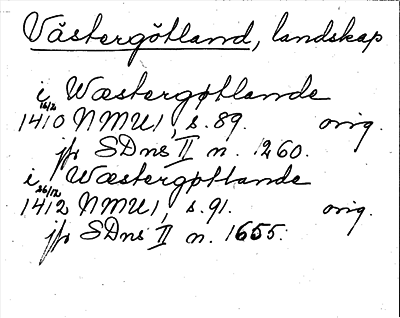 Västergötland, landskap
i Wæstergøtlande
1410 16/2 NMU 1, s. 89. orig.
jfr SDns II n. 1260.
i Wæstergøtlande
1412 26/12 NMU 1, s. 91. orig.
jfr SDns II n. 1655.